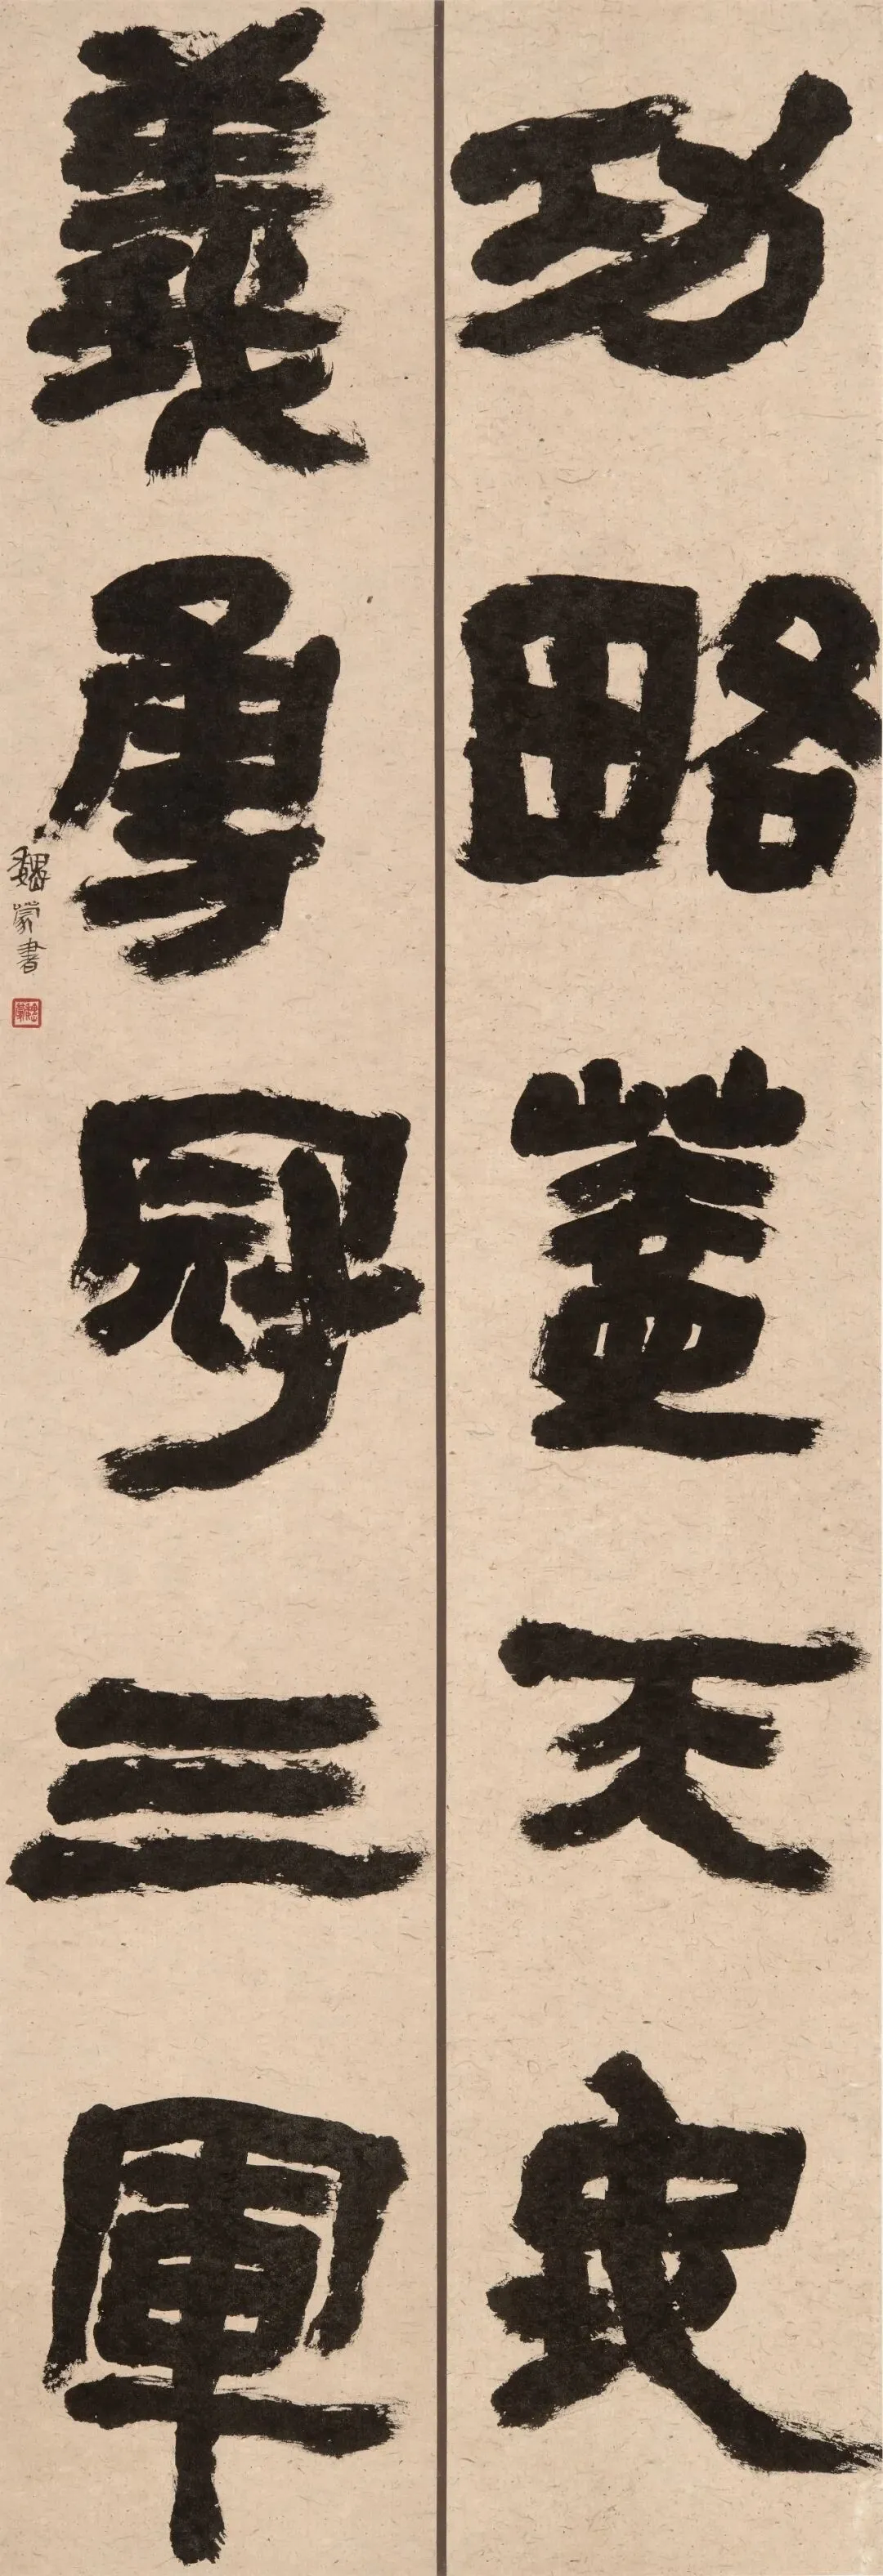 功略蓋天地
義勇冠三軍
魏蒙書